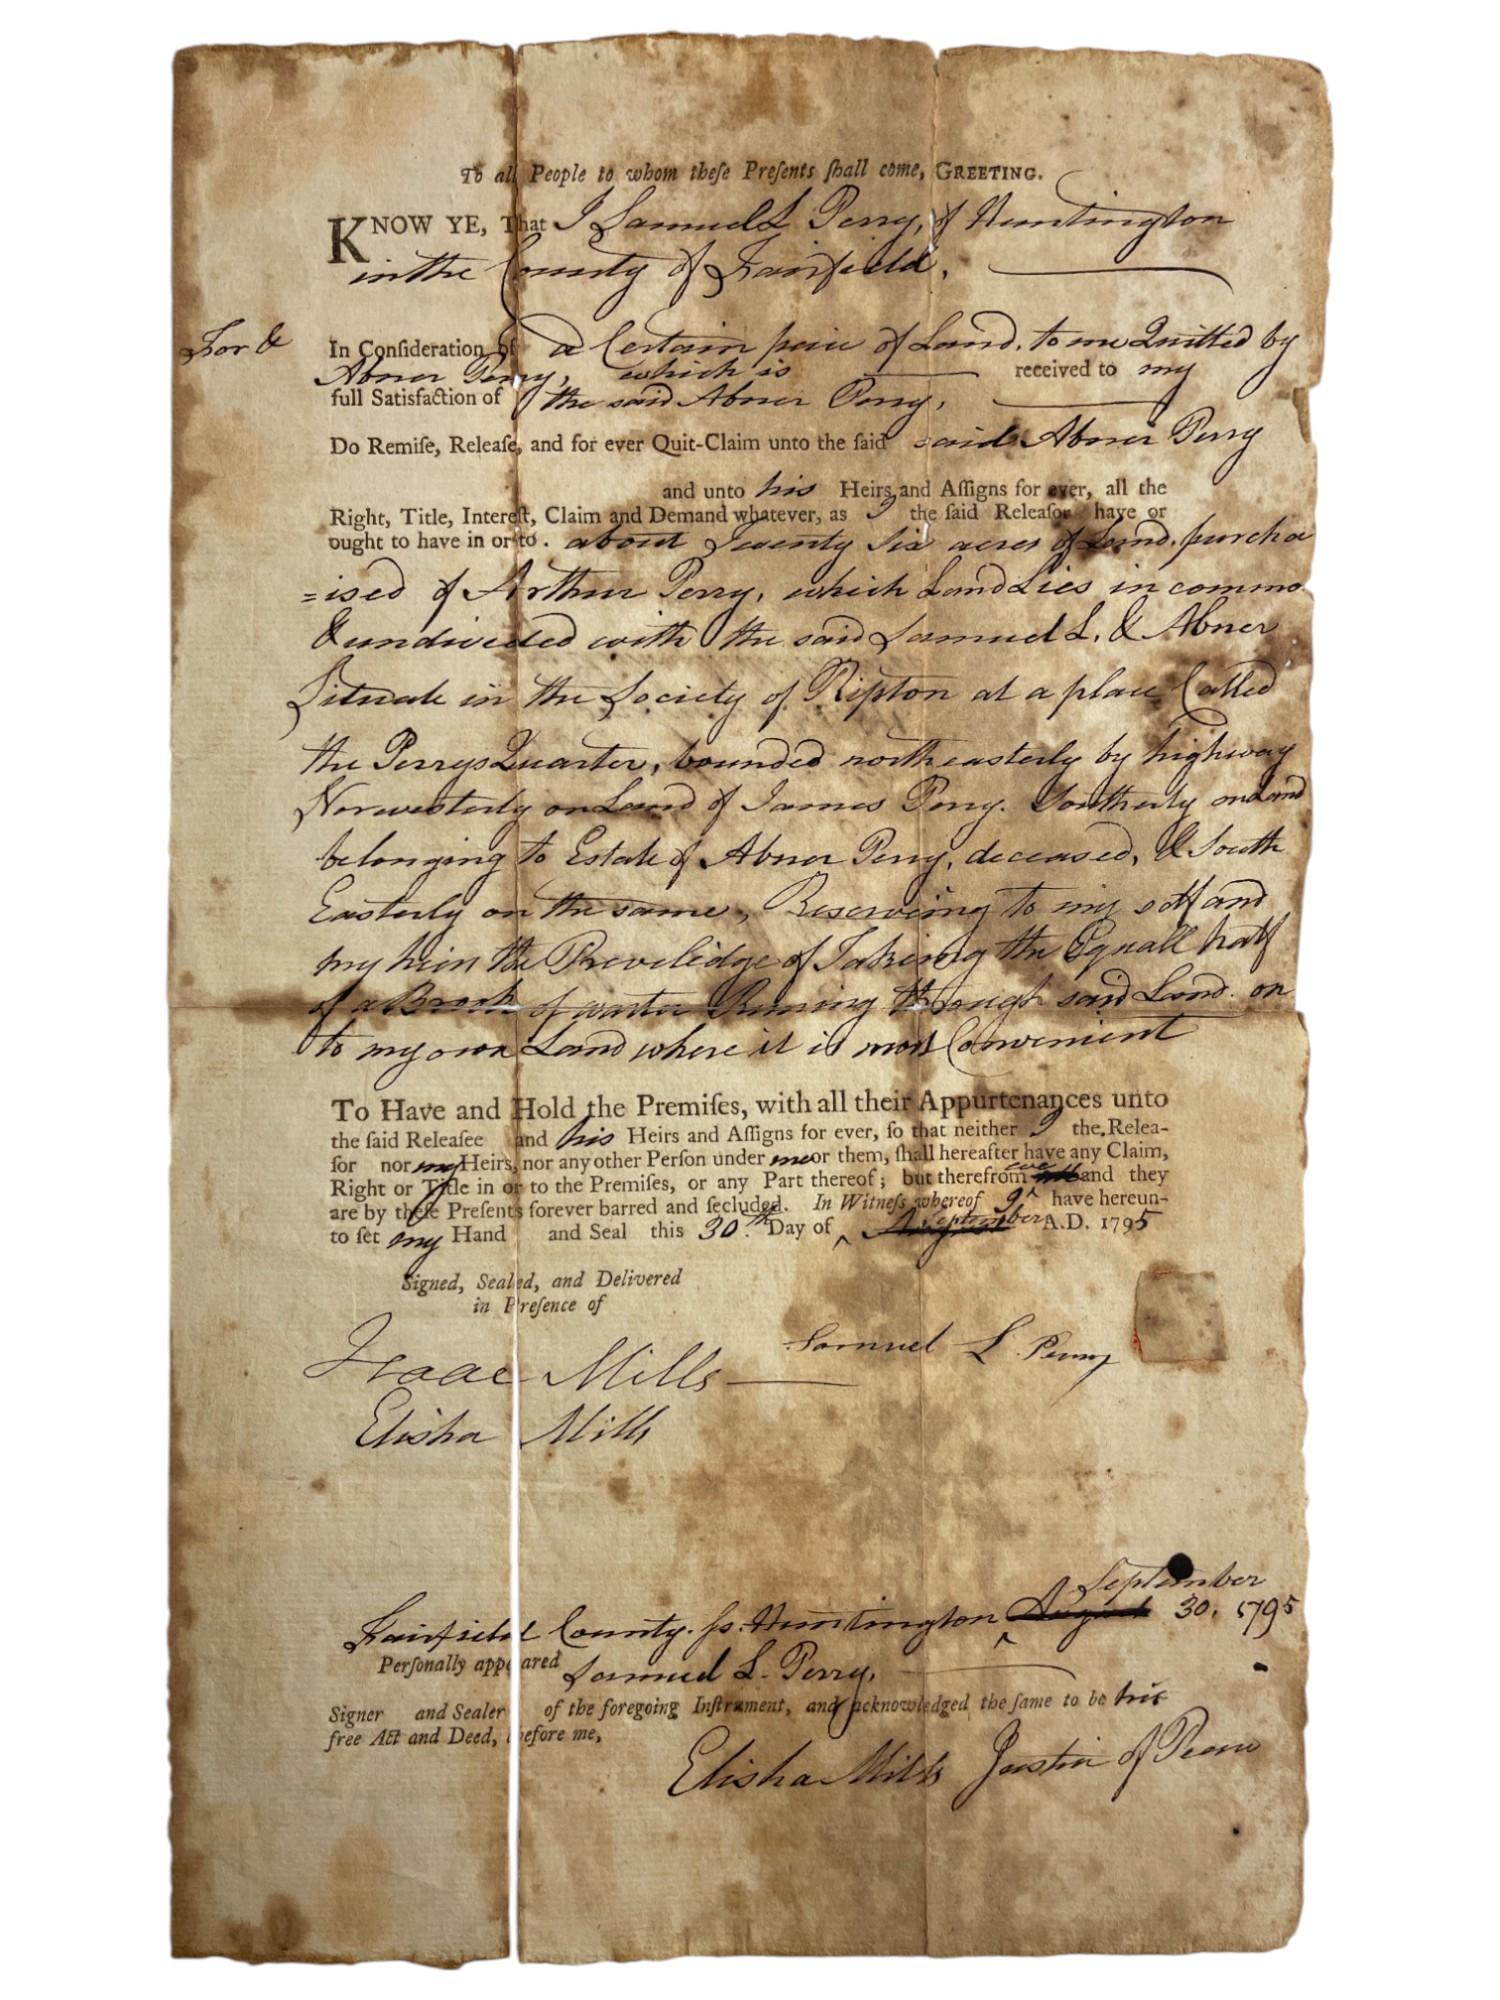 To all People to whom theſe Preſents ſhall come, GREETING.
KNOW YE, That I Samuel L Perry, of Huntington
in the County of Fairfield,
For & In Conſideration of a Certain peice of Land, to me Quitted by
Abner Perry, which is received to my
full Satisfaction of the said Abner Perry,
Do Remiſe, Releaſe, and for ever Quit-Claim unto the ſaid said Abner Perry
and unto his Heirs and Aſſigns for ever, all the
Right, Title, Intereſt, Claim and Demand whatever, as I the ſaid Releaſor have or
ought to have in or to. about Twenty Six acres of Land, purcha
=ised of Arthur Perry, which Land Lies in commo
& undivided with the said Samuel L. & Abner
Situate in the Society of Ripton at a place Called
the Perrys Quarter, bounded northeasterly by highway
Norwesterly on Land of James Perry. Southerly on Land
belonging to Estate of Abner Perry, deceased, & South
Easterly on the same, Reserveing to my self and
my heirs the Preveledge of Takeing the Equall half
of a Brook of warter Runing through said Land. on
to my own Land where it is most Convenient
To Have and Hold the Premiſes, with all their Appurtenances unto
the ſaid Releaſee and his Heirs and Aſſigns for ever, ſo that neither I the Relea-
ſor nor my Heirs, nor any other Perſon under me or them, ſhall hereafter have any Claim,
Right or Title in or to the Premiſes, or any Part thereof; but therefrom and they
are by theſe Preſents forever barred and ſecluded. In Witneſs whereof I have hereun-
to ſet my Hand and Seal this 30.th Day of August September A.D. 1795
Signed, Sealed, and Delivered
in Preſence of
Samuel L. Perry
Isaac Mills
Elisha Mills
September
Fairfield County. ſs. Huntington August 30, 1795
Perſonally appeared Samuel L. Perry,
Signer and Sealer of the foregoing Inſtrument, and acknowledged the ſame to be his
free Act and Deed, before me,
Elisha Mills Justice of Peace